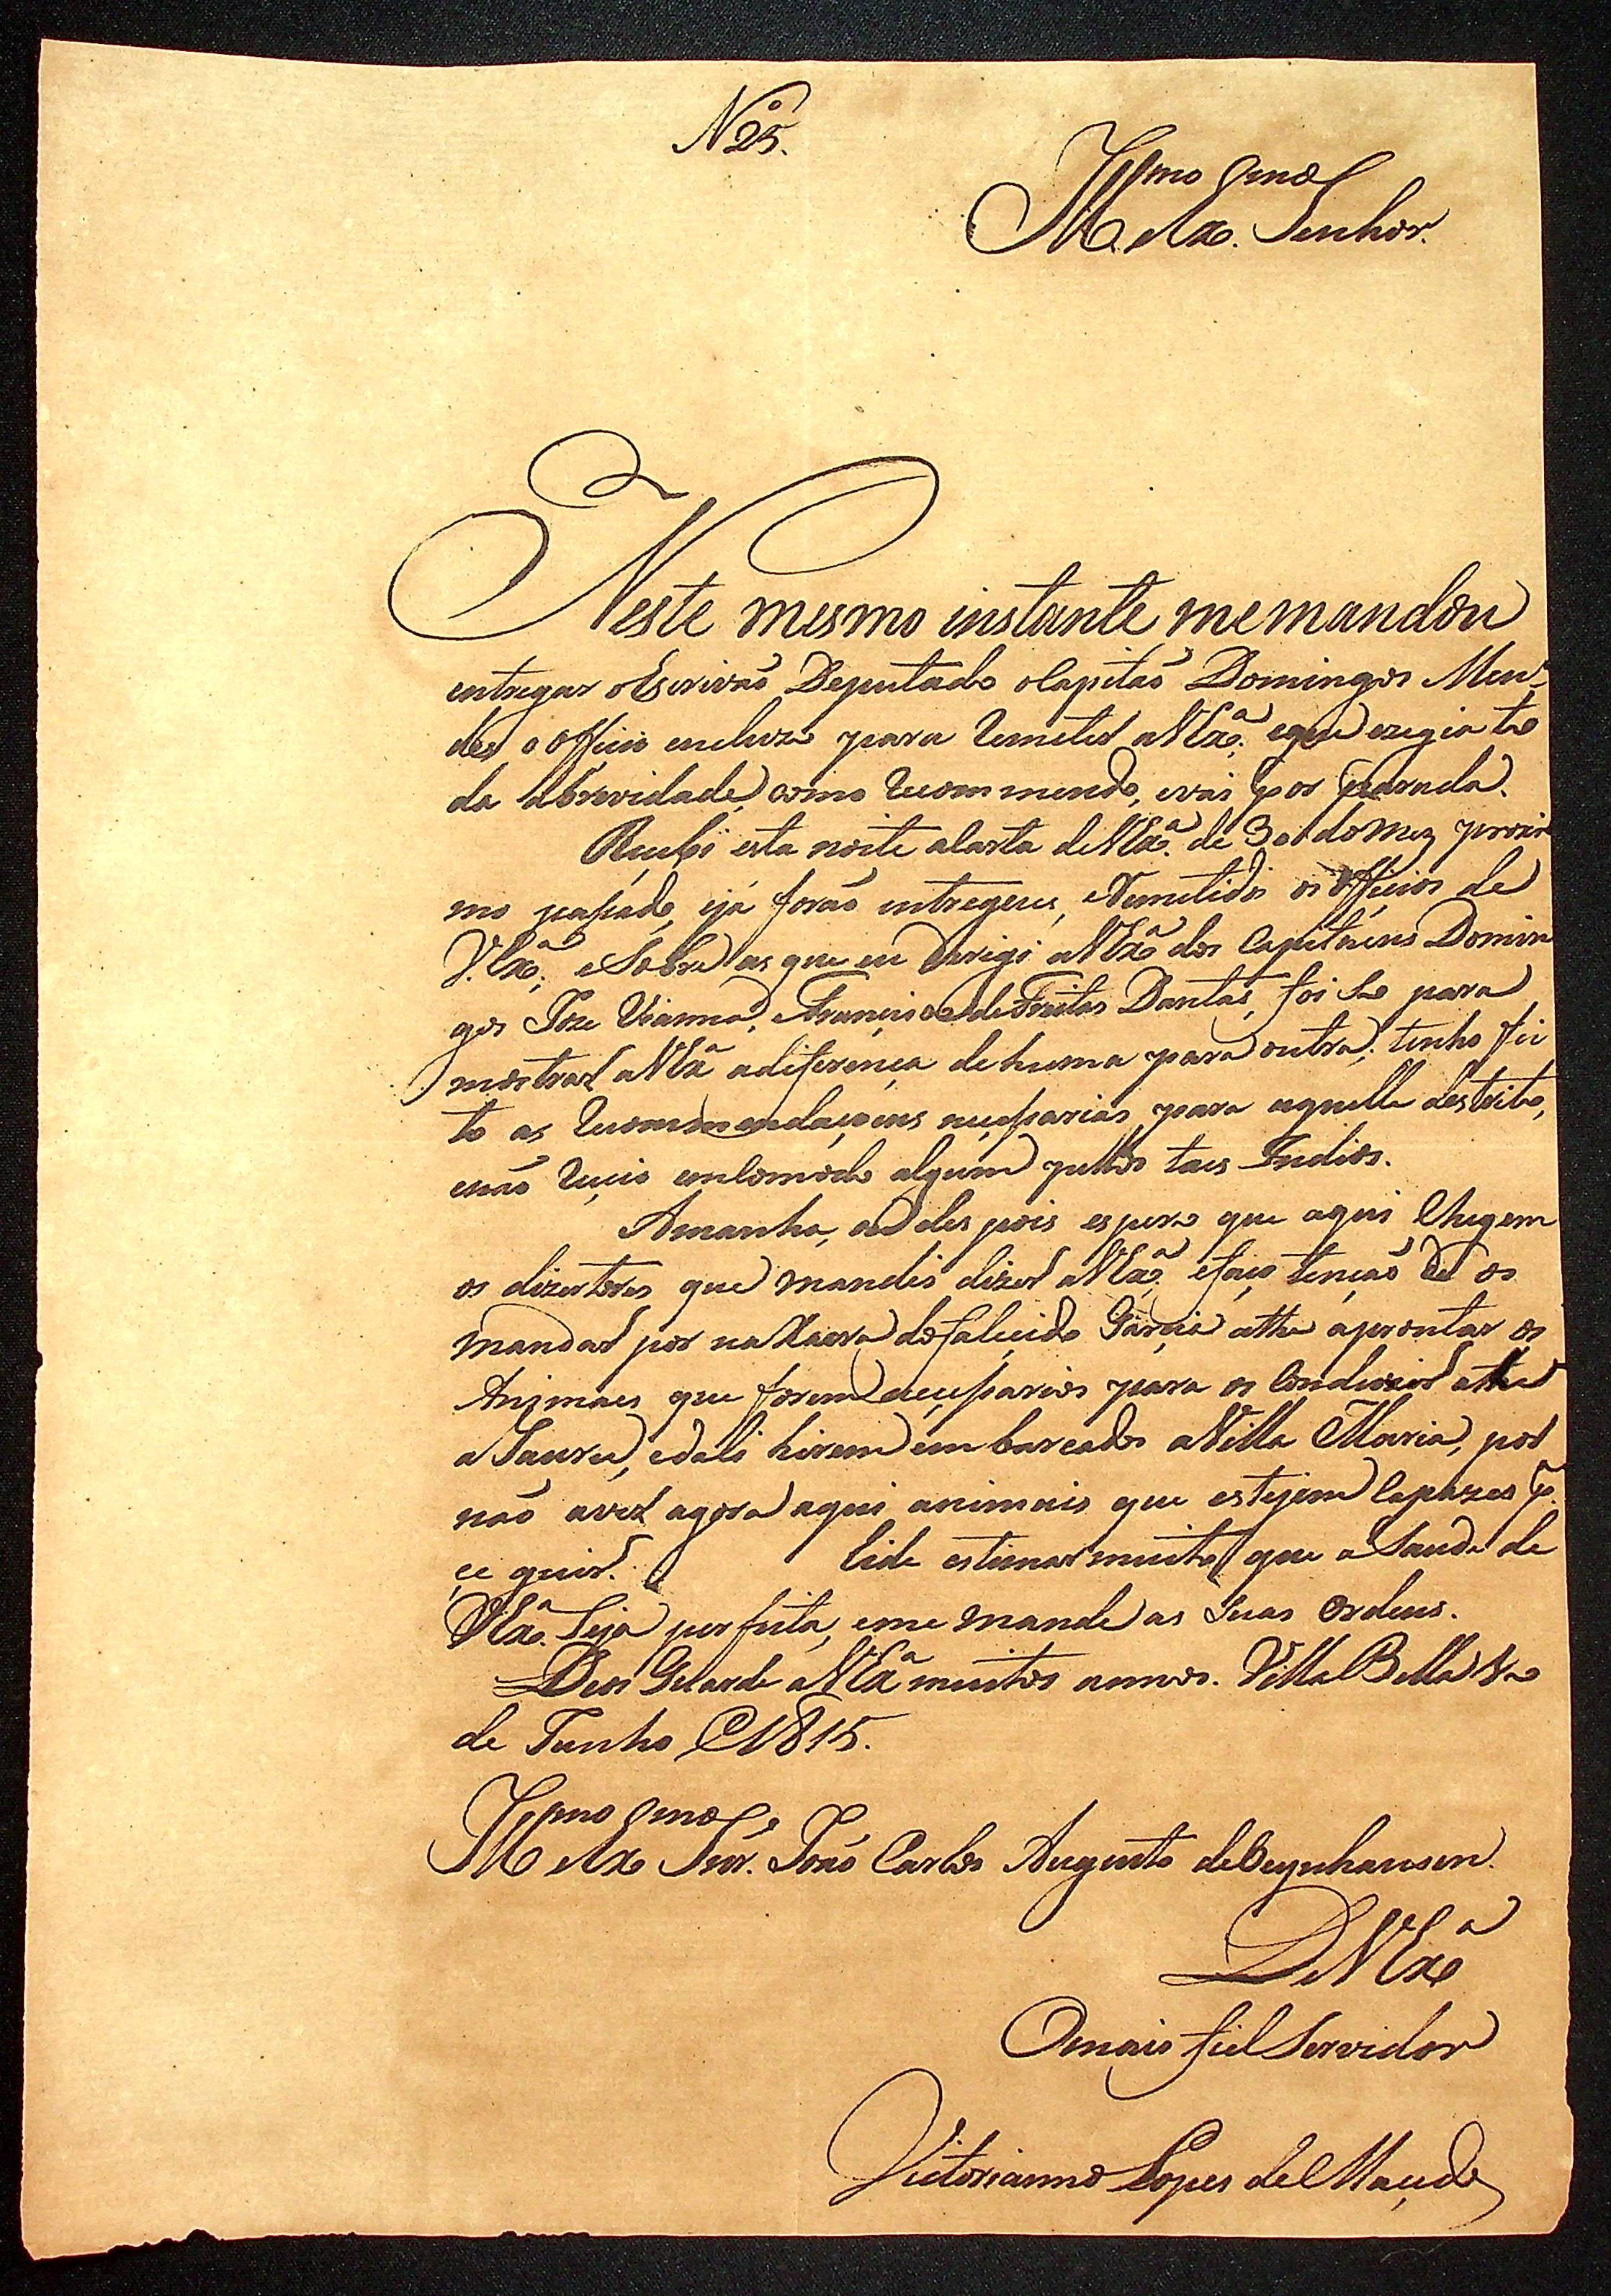 N.º 25.
Ill.mo e Ex.mo Senhor.
Neste mesmo instante me mandou
entregar o Escrivaõ Deputado o Capitaõ Domingos Men-
des o Officio encluzo para remeter a V Ex.ª, e que exegia to
da abrevidade, como recommendo, e vai por parada.
Recebi esta noite a Carta de V Ex.ª de 30 do Mez proxi
mo passado, e já foraõ entregeues, e Remetidos os Officios de
V. Ex.ª; e Sobre as que eu derigi a V Ex.ª dos Capitaens Domin
gos Joze Vianna, e Francisco de Freitas Dantas, foi So para
mostrar a V Ex.ª a diferença de huma para outra; tenho fei
to as recommendaçoens neçessarias para aquelle destrito,
e naõ reçeio emComodo algum pellos taes Indios.
Amanha, ou des pois espero que aqui Chegem
os dizertores que mandei dizer a V Ex.ª, e faço tençaõ de os
mandar por na do faleçido Garçia athe aprontar os
Animaes que forem neçessarios para os Conduzir athe
a Jauru, e dali hirem em barcados a Villa Maria, por
naõ aver agora aqui animais que estejem Capazes p.ª
çe guir. Eide estimar muito que a Saude de
V Ex.ª Seja perfeita, e me mande as Suas Ordens.
Deos Guarde a V Ex.ª muitos annos. Villa Bella
de Junho de 1815.
Ill.mo e Ex.mo Snr. Joaõ Carlos Augusto de Oeynhausen.
De V Ex.ª
O mais fiel Servidor
Victorianno Lopes de Maçedo